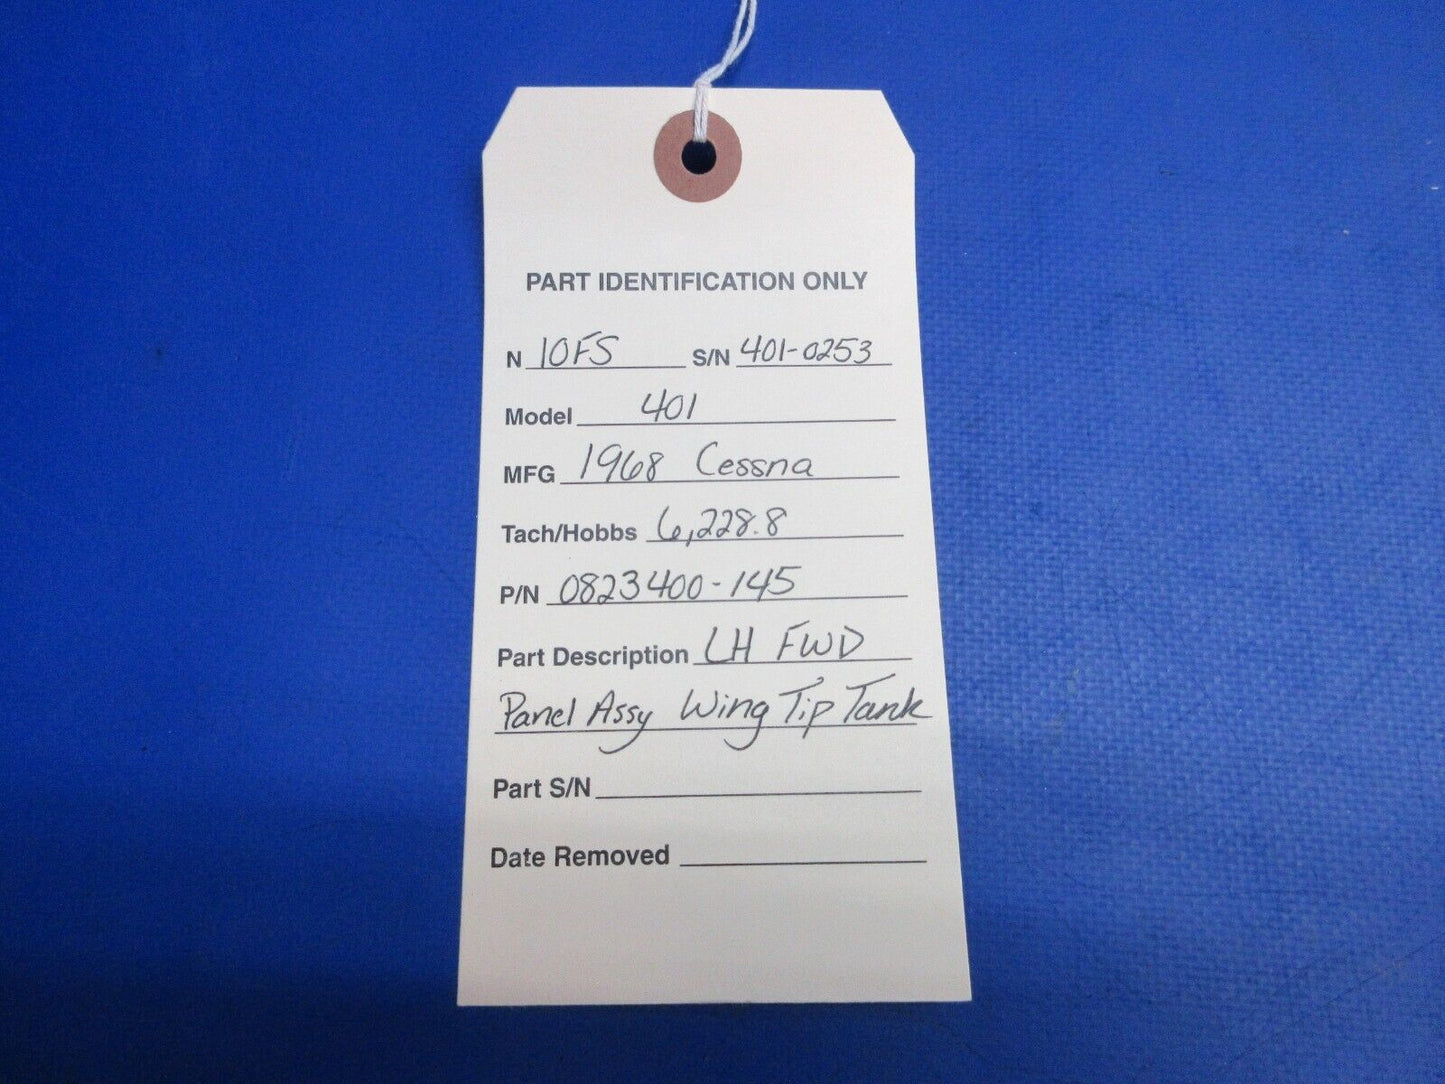 PART IDENTIFICATION ONLY
N 10FS S/N 401-0253
Model 401
MFG 1968 Cessna
Tach/Hobbs 6,228.8
P/N 0823400-145
Part Description LH FWD
Panel Assy Wing Tip Tank
Part S/N
Date Removed